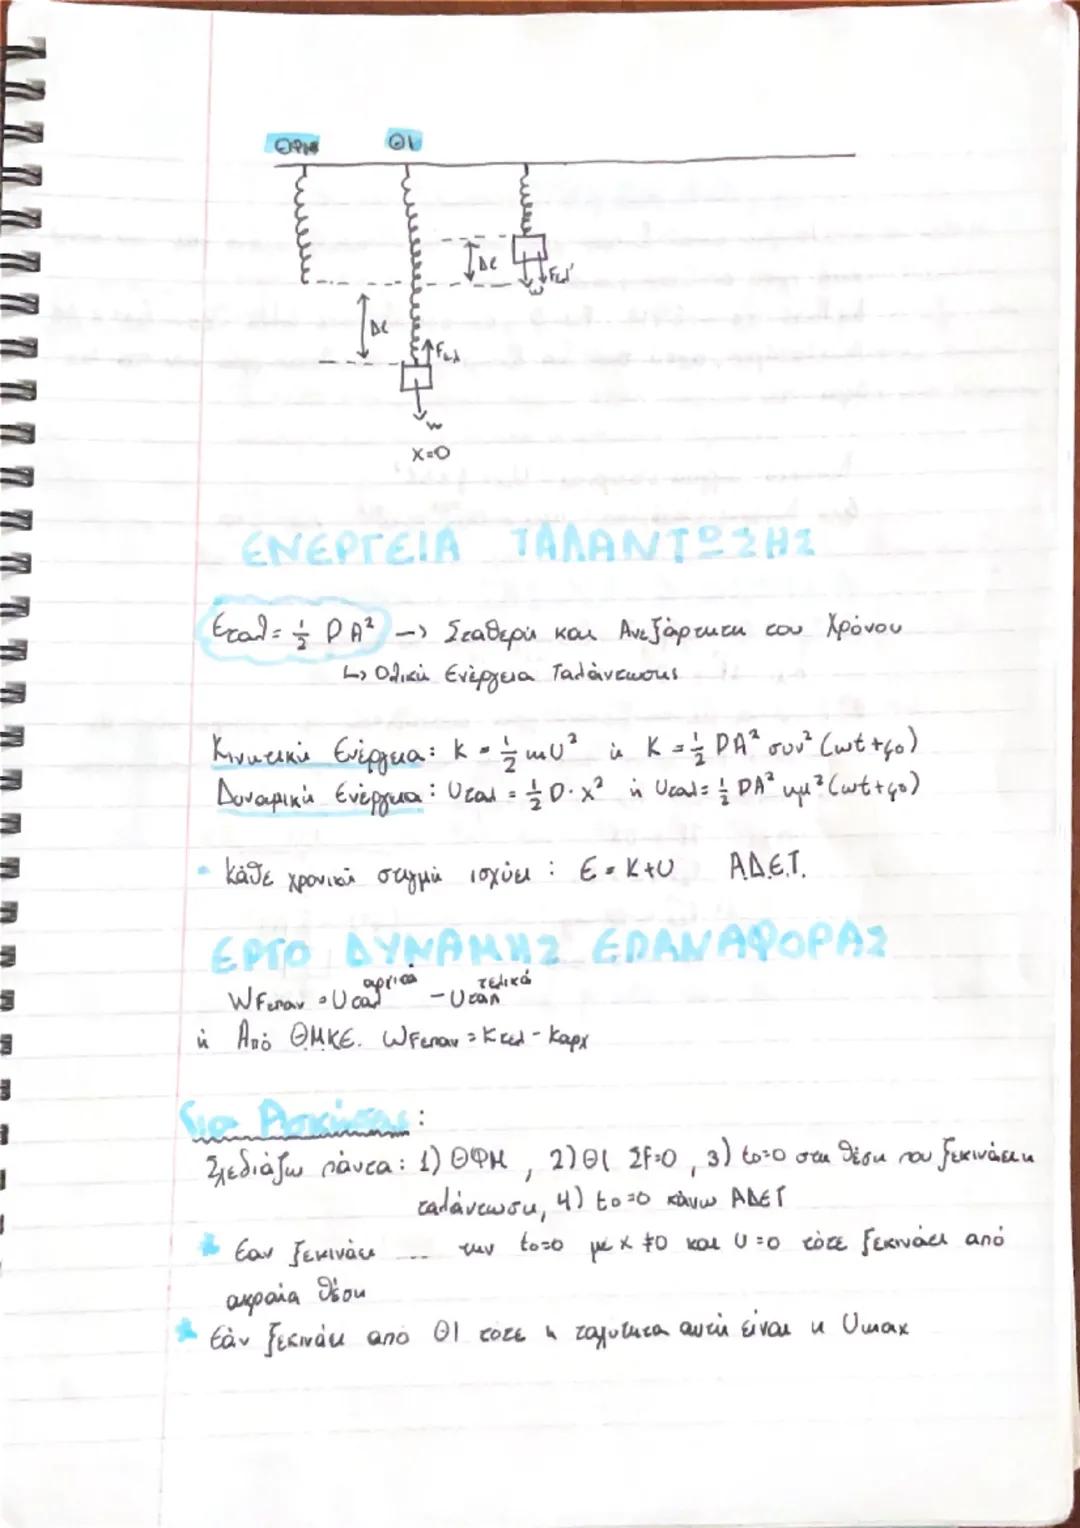 ΘΦΜ ΘΙ
Δℓ Fελ'
w
Δℓ Fελ
w
x=0
ΕΝΕΡΓΕΙΑ ΤΑΛΑΝΤΩΣΗΣ
Εταλ = 1/2 D A² -> Σταθερή και Ανεξάρτητη του Χρόνου
↳ Ολική Ενέργεια Ταλάντωσης
Κινητική Ενέργεια: K = 1/2 mU² ή K = 1/2 DA² συν² (ωt+φ0)
Δυναμική Ενέργεια: Uταλ = 1/2 D·x² ή Uταλ = 1/2 DA² ημ² (ωt+φ0)
• κάθε χρονική στιγμή ισχύει : E = K+U Α.Δ.Ε.Τ.
ΕΡΓΟ ΔΥΝΑΜΗΣ ΕΠΑΝΑΦΟΡΑΣ
WFεπαν = Uταλ αρχικά - Uταλ τελικά
ή Από ΘΜΚΕ. WFεπαν = Kτελ - Kαρχ
Για Ασκήσεις:
Σχεδιάζω πάντα: 1) ΘΦΜ , 2) ΘΙ ΣF=0 , 3) to=0 στη θέση που ξεκινάει η
ταλάντωση, 4) to=0 κάνω ΑΔΕΤ
* Εαν ξεκινάει ... την to=0 με x ≠0 και U=0 τότε ξεκινάει από
ακραία θέση
* Εάν ξεκινάει από ΘΙ τότε η ταχύτητα αυτή είναι η Umax